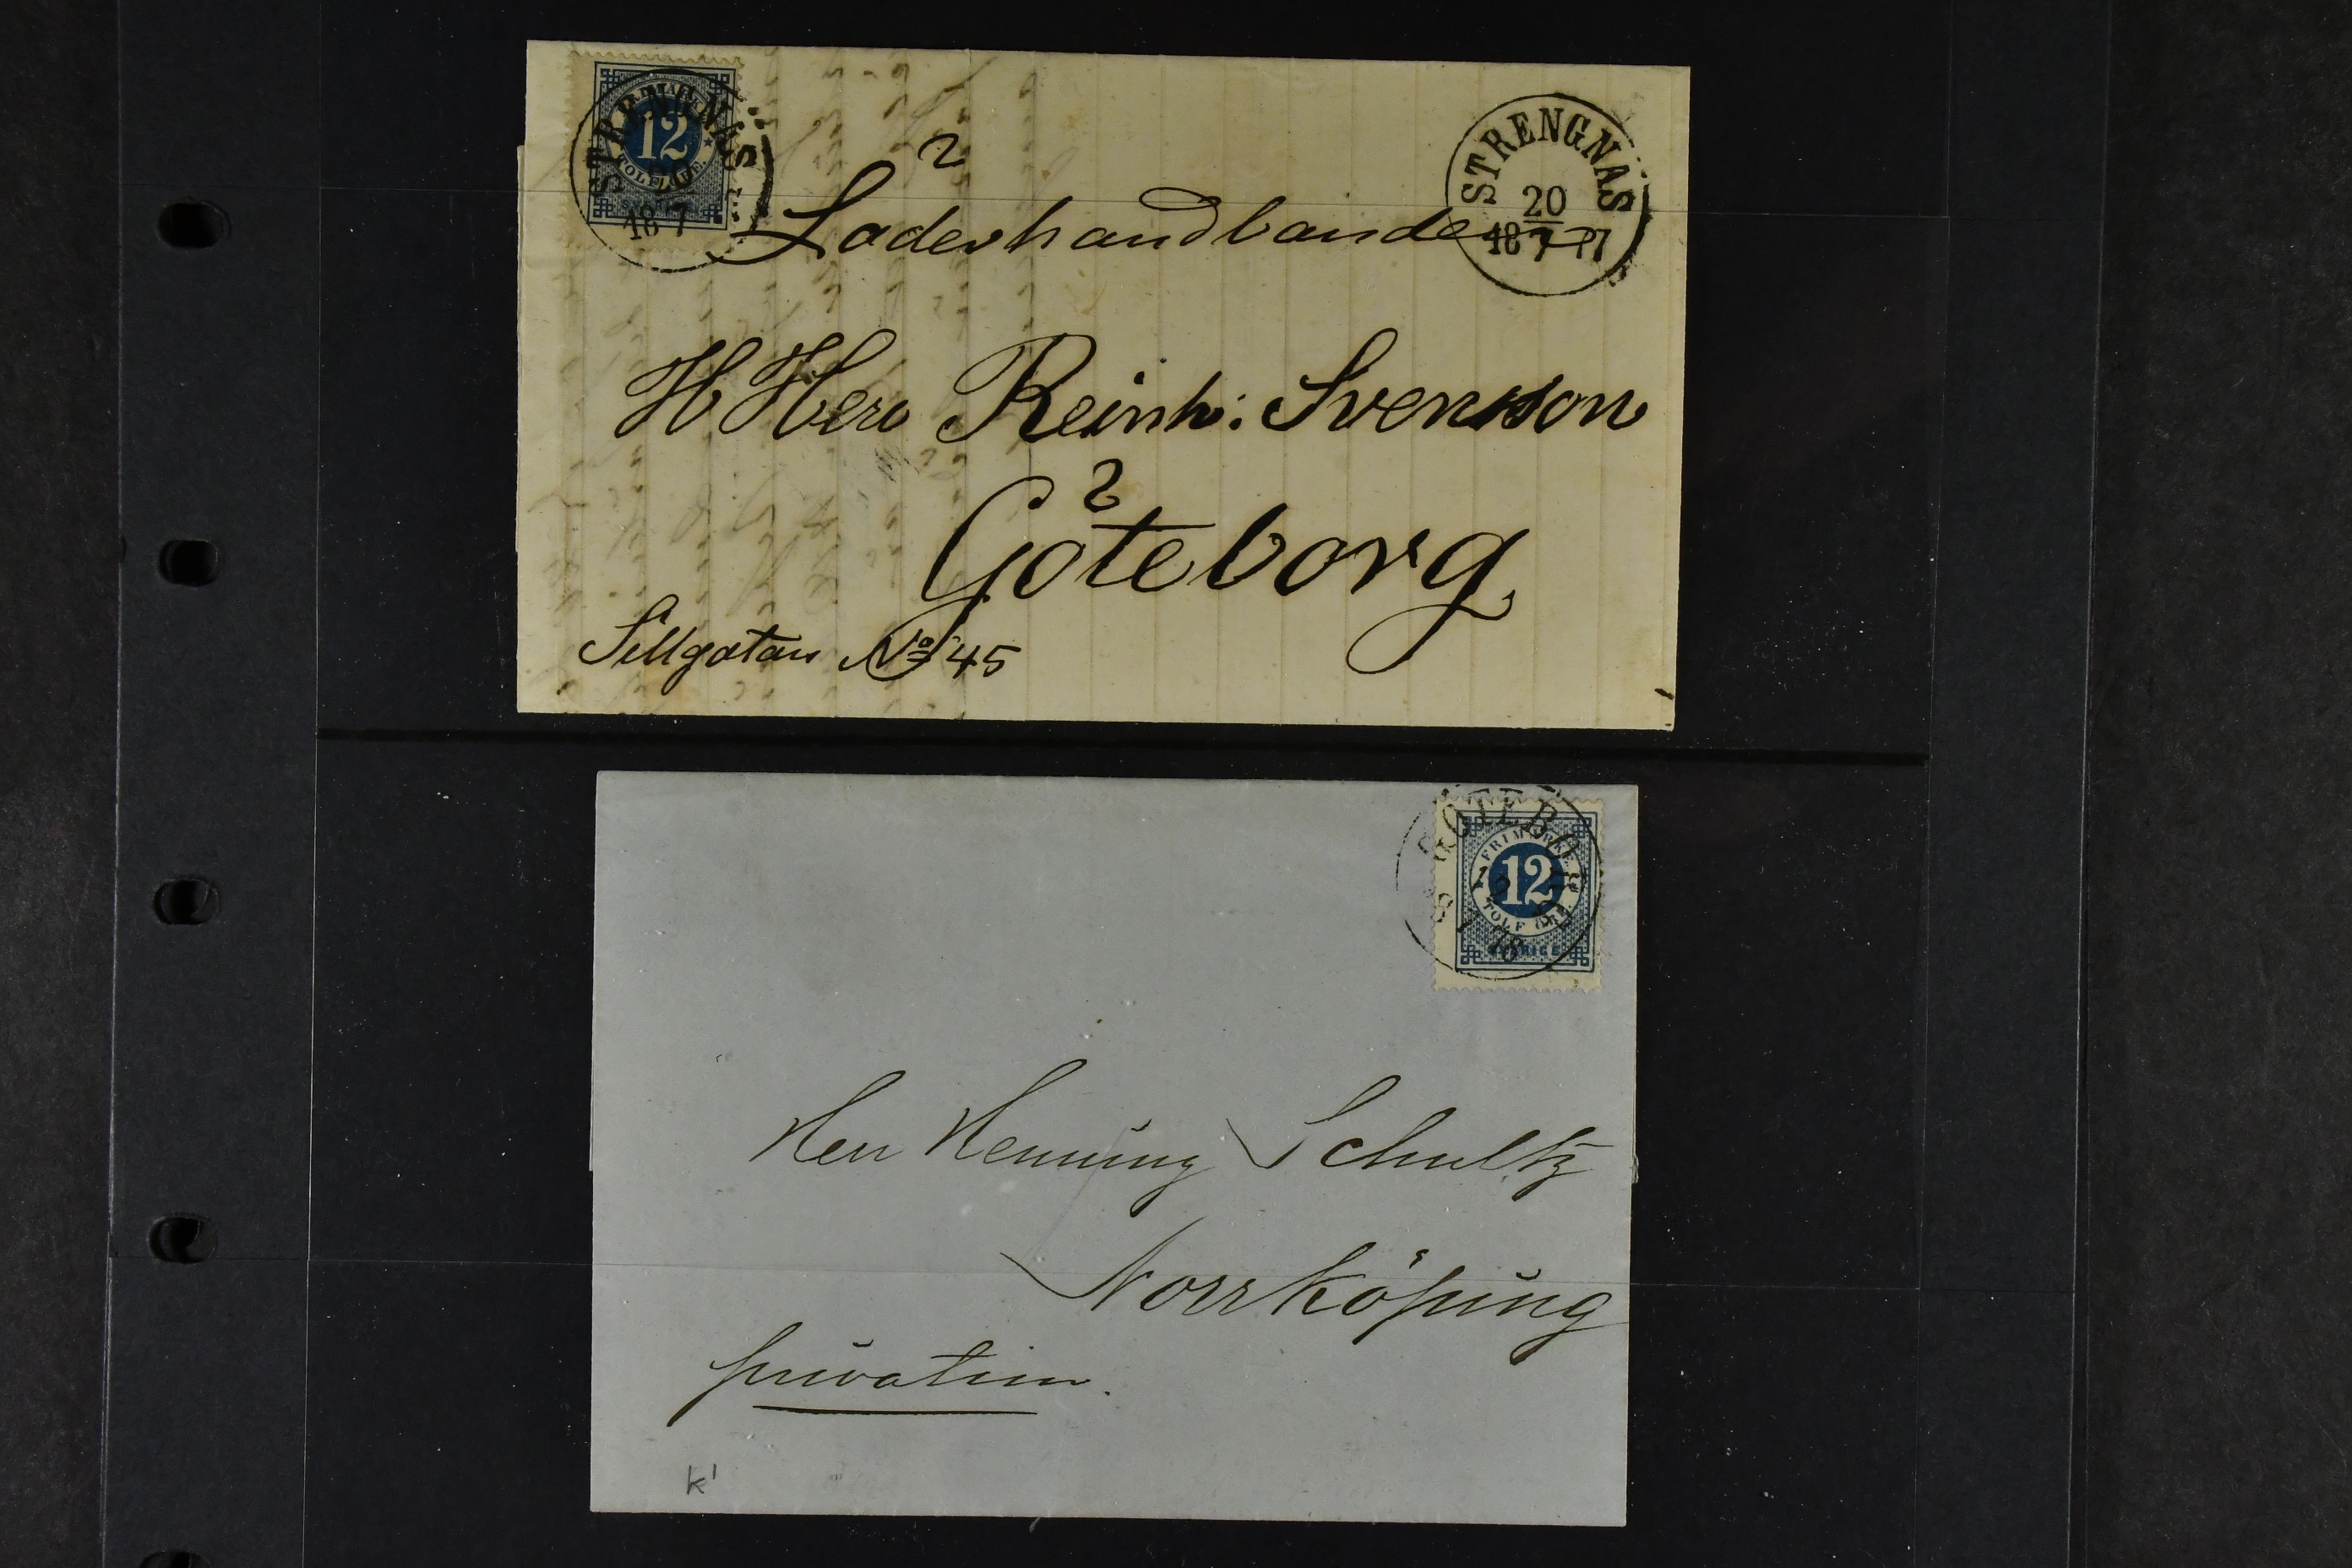 FRIMÄRKE
12
TOLF ÖRE
STRENGNÄS
20
18 7
STRENGNÄS
20
18 7 77
Läderhandlanden
H Herr Reinh: Svensson
Göteborg
Sillgatan No 45
GÖTEBORG
FRIMÄRKE
12
TOLF ÖRE
SVERIGE
Herr Henning Schultz
Norrköping
privatim.
K'